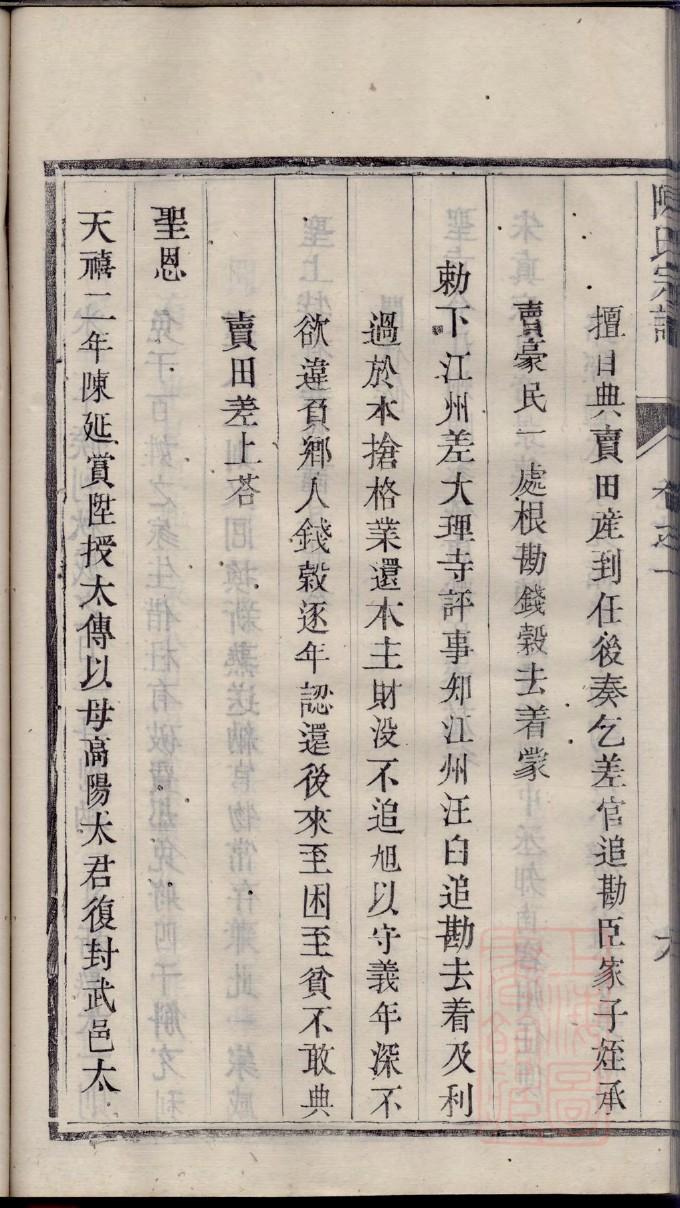 陳氏宗譜
卷之一
六
擅自典賣田産到任後奏乞差官追勘臣家子姪承
賣豪民一處根勘錢榖去着蒙
勅下江州差大理寺評事知江州汪白追勘去着及利
過於本搶格業還本主財没不追旭以守義年深不
欲違負鄉人錢榖逐年認還後來至困至貧不敢典
賣田差上荅
聖恩
天禧二年陳延賞陞授太傳以母高陽太君復封武邑太